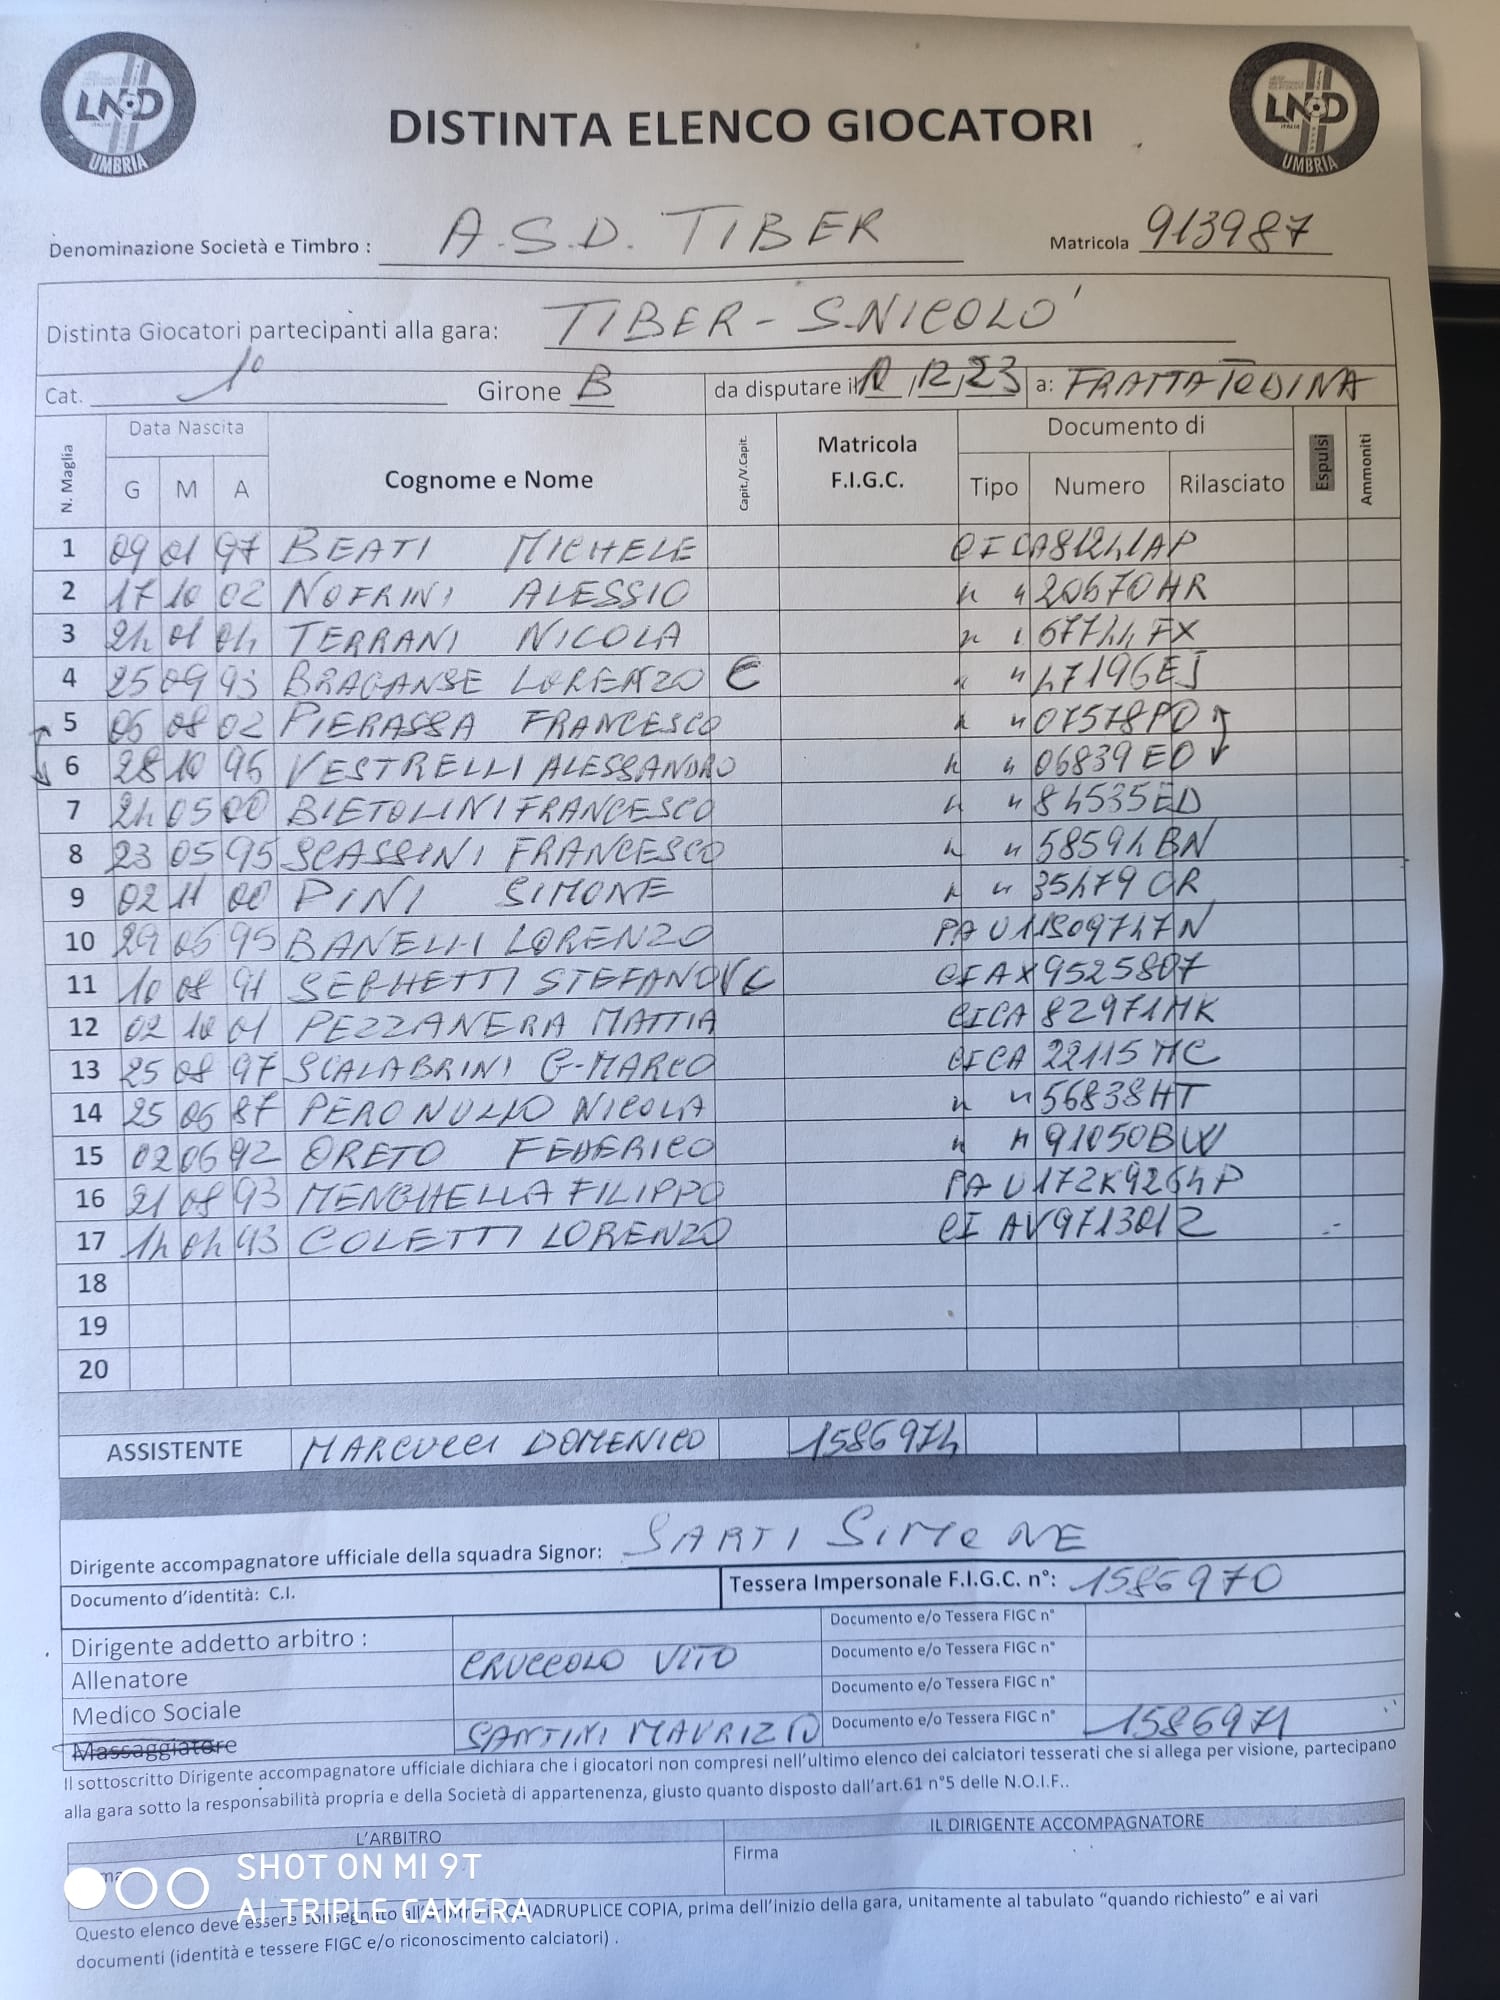 LND
UMBRIA
LND
ITALIA
UMBRIA
DISTINTA ELENCO GIOCATORI
Denominazione Società e Timbro : A.S.D. TIBER Matricola 913987
Distinta Giocatori partecipanti alla gara: TIBER - S.NICOLO'
Cat. 1° Girone B da disputare il , 12, 23 a: FRATTA TODINA
N. Maglia Data Nascita Cognome e Nome Capit./V.Capit. Matricola F.I.G.C. Documento di Espulsi Ammoniti
G M A Tipo Numero Rilasciato
1 09 01 97 BEATI MICHELE CI CA81241AP
2 17 10 02 NOFRINI ALESSIO " " 20670HR
3 24 01 04 TERRANI NICOLA " " 67744FX
4 25 09 93 BRAGANSE LORENZO C " " 47196EJ
5 06 08 02 PIERASSA FRANCESCO " " 07578PO
6 28 10 96 VESTRELLI ALESSANDRO " " 06839EO
7 24 05 00 BIETOLINI FRANCESCO " " 84535ED
8 23 05 95 SCASSINI FRANCESCO " " 58594BN
9 02 11 00 PINI SIMONE " " 35479OR
10 29 06 95 BANELLI LORENZO PA
11 10 08 91 SEGHETTI STEFANO VC CI AX9525807
12 02 10 01 PEZZANERA MATTIA CI CA 82971MK
13 25 08 97 SCALABRINI G-MARCO CI CA 22115MC
14 25 06 87 PERONULLO NICOLA " " 56838HT
15 02 06 92 ORETO FEDERICO " " 91050BW
16 21 08 93 MENGHELLA FILIPPO PA U172K9264P
17 14 04 93 COLETTI LORENZO CI AV9713012
18
19
20
ASSISTENTE MARCUCCI DOMENICO 1586974
Dirigente accompagnatore ufficiale della squadra Signor: SARTI SIMONE
Documento d'identità: C.I. Tessera Impersonale F.I.G.C. n°: 1586970
Dirigente addetto arbitro : Documento e/o Tessera FIGC n°
Allenatore CRUCCOLO VITO Documento e/o Tessera FIGC n°
Medico Sociale Documento e/o Tessera FIGC n°
Massaggiatore SANTINI MAURIZIO Documento e/o Tessera FIGC n° 1586971
Il sottoscritto Dirigente accompagnatore ufficiale dichiara che i giocatori non compresi nell'ultimo elenco dei calciatori tesserati che si allega per visione, partecipano
alla gara sotto la responsabilità propria e della Società di appartenenza, giusto quanto disposto dall'art.61 n°5 delle N.O.I.F..
L'ARBITRO IL DIRIGENTE ACCOMPAGNATORE
Firma
SHOT ON MI 9T
AI TRIPLE CAMERA
Questo elenco deve essere consegnato all'Arbitro in QUADRUPLICE COPIA, prima dell'inizio della gara, unitamente al tabulato "quando richiesto" e ai vari
documenti (identità e tessere FIGC e/o riconoscimento calciatori) .